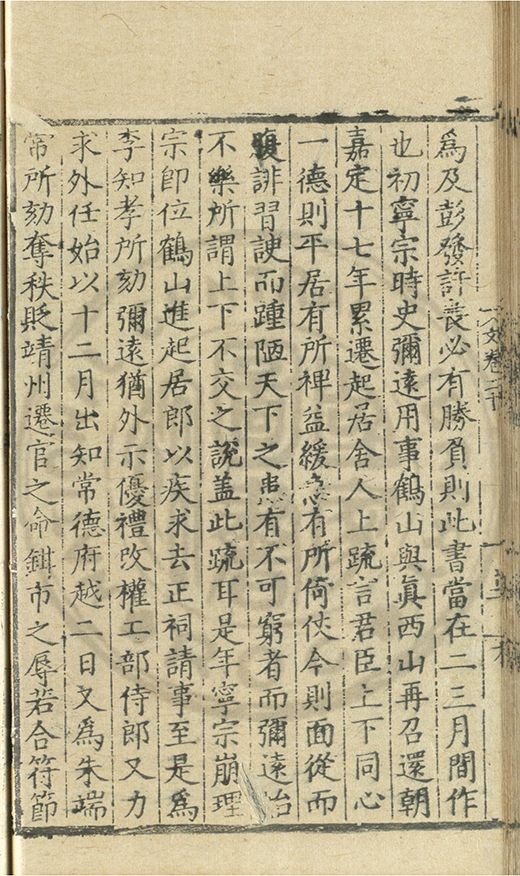 為及彭發許喪必有勝負則此書當在二三月間作
也初寧宗時史彌遠用事鶴山與眞西山再召還朝
嘉定十七年累遷起居舍人上䟽言君臣上下同心
一德則平居有所裨益緩急有所倚伏今則面從而
腹誹習諛而踵陋天下之患有不可窮者而彌遠始
不樂所謂上下不交之說盖此䟽耳是年寧宗崩理
宗卽位鶴山進起居郎以疾求去正祠請事至是爲
李知孝所劾彌遠猶外示優禮改權工部侍郎又力
求外任始以十二月出知常德府越二日又爲朱端
常所劾奪秩貶靖州遷官之命鉗市之辱若合符節
文卷二十